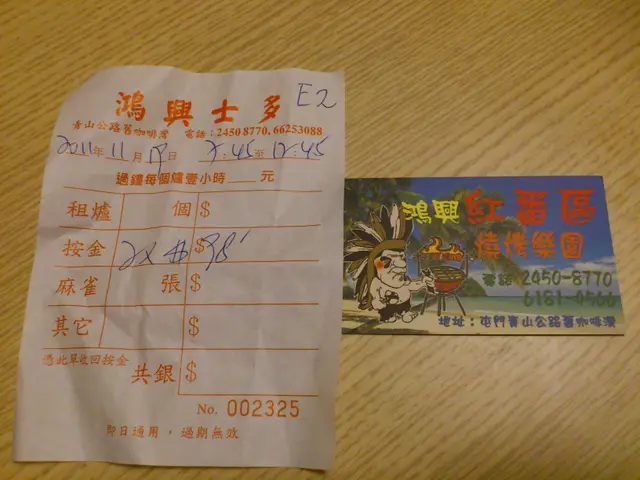 鴻興士多
E2
青山公路舊咖啡灣 電話:2450 8770, 66253088
2011年 11月 19日 7:45至12:45
過鐘每個爐壹小時 元
租爐 個 $
按金 $98
麻雀 張 $
其它 $
憑此單收回按金 共銀 $
No. 002325
即日通用,過期無效
鴻興 紅番區
燒烤樂園
電話 2450-8770
6181-4566
地址:屯門青山公路舊咖啡灣